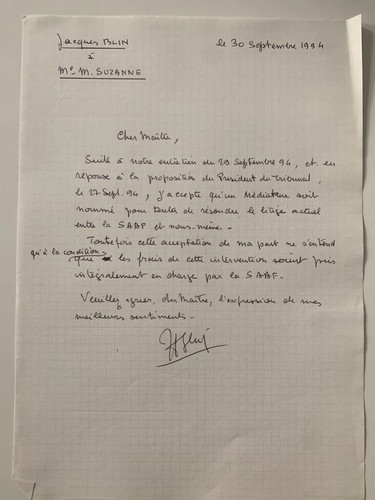 Jacques BLIN
le 30 Septembre 1994
à
Me M. SUZANNE
Cher Maître,
Suite à notre entretien du 29 Septembre 94, et en
réponse à la proposition du Président du Tribunal,
le 27 Sept. 94, j'accepte qu'un Médiateur soit
nommé pour tenter de résoudre le litige actuel
entre la SABF et nous-même.
Toutefois cette acceptation de ma part ne s'entend
qu'à la condition que les frais de cette intervention soient pris
intégralement en charge par la SABF.
Veuillez agréer, cher Maître, l'expression de mes
meilleurs sentiments.